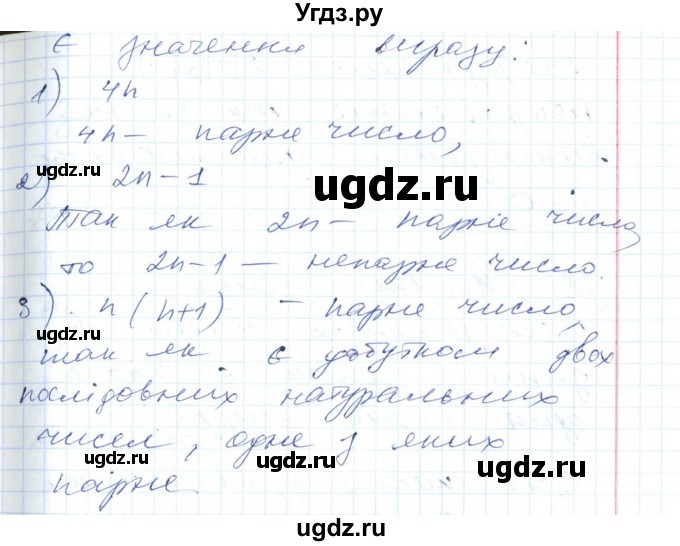 Угдз.ру
є значення виразу:
1) 4n
4n — парне число,
ugdz.ru
ugdz.ru
ugdz.ru
2) 2n – 1
Так як 2n — парне число,
то 2n – 1 — непарне число.
3) n(n+1) – парне число,
ugdz.ru
ugdz.ru
так як є добутком двох
послідовних натуральних
чисел, одне з яких
ugdz.ru
ugdz.ru
ugdz.ru
парне.
ugdz.ru